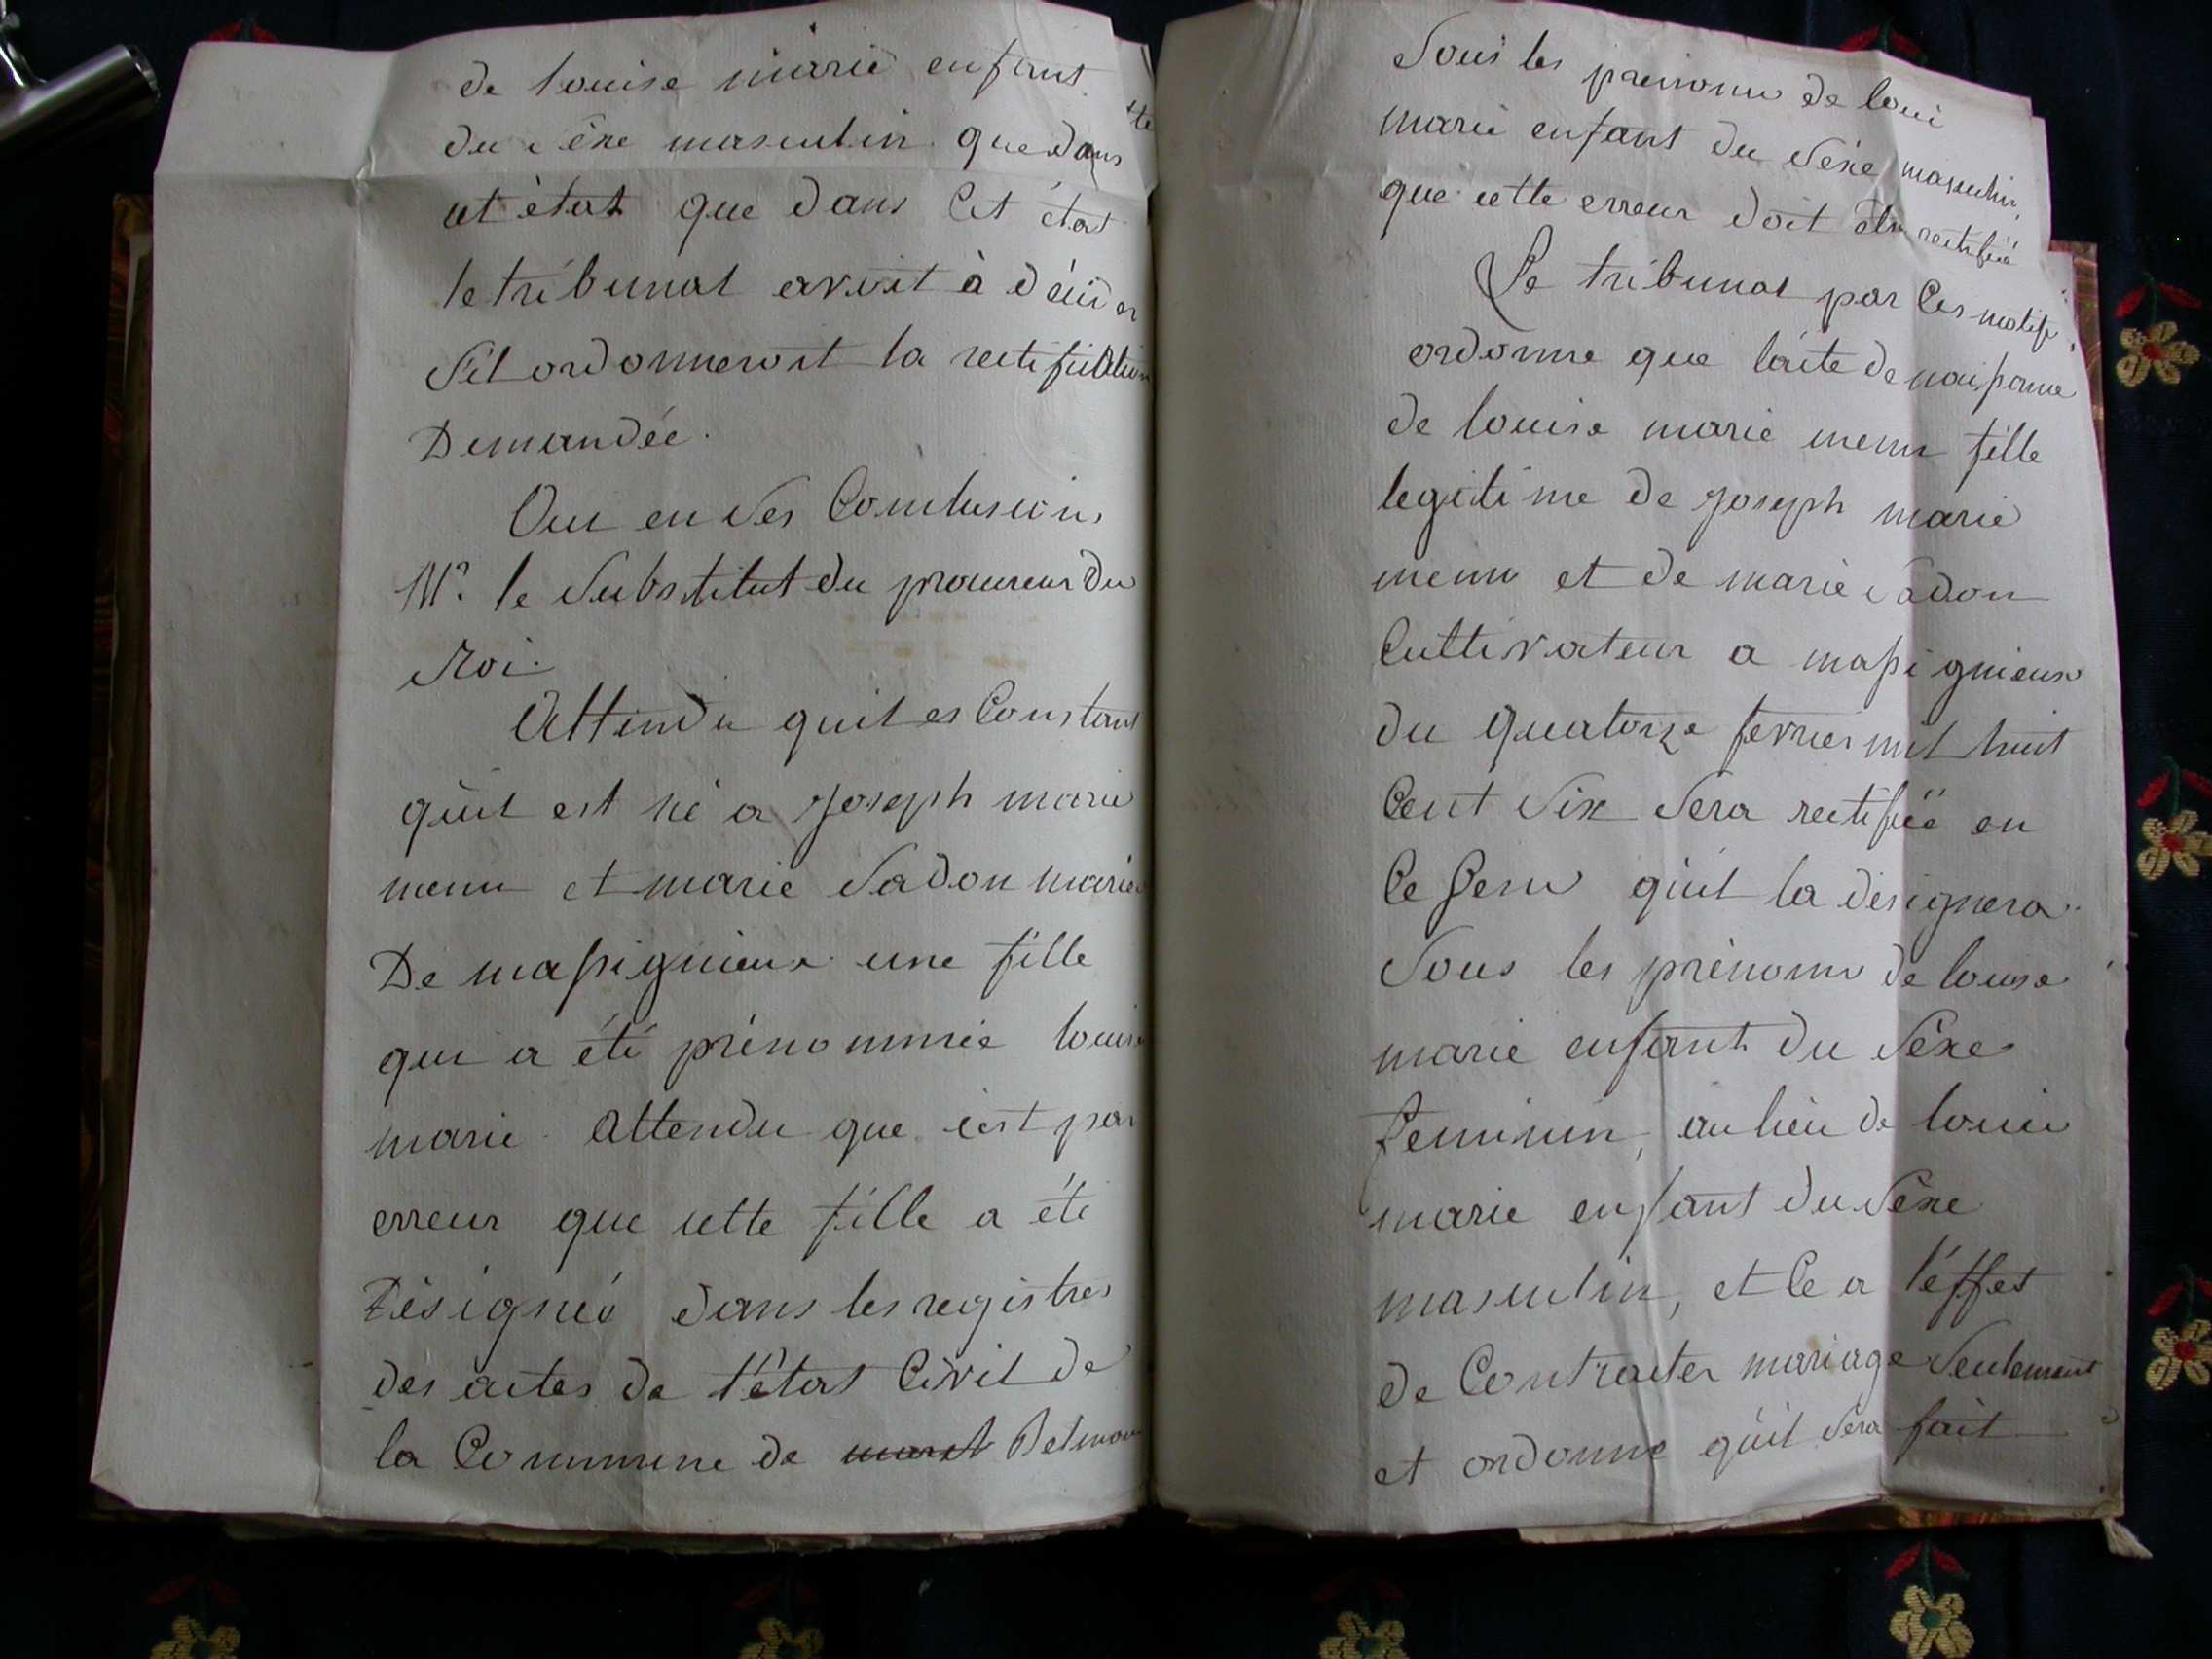 de louise marie enfant
du séxe masculin que dans
cet état que dans Cet état
le tribunal avoit à décider
S'il ordonneroit la rectification
Demandée.
Oui en ses Conclusions
Mr. le Substitut du procureur du
Roi.
Attendu quil es Constant
qu'il est né a Joseph marie
menu et marie Sadon mariés
De massignieux une fille
qui a été prénommée louise
marie. Attendu que c'est par
erreur que cette fille a été
Désignée dans les registres
des actes de l'état Civil de
la Commune de Belmont
Sous les prénoms de loui
marie enfant du Séxe masculin,
que cette erreur doit être rectifiée
Le tribunal par Ces motifs
ordonne que l'acte de naissance
de louise marie menu fille
legitime de Joseph marie
menu et de marie Sadon
Cultivateur a massignieux
du quatorze fevrier mil huit
Cent Six Sera rectifiée en
Ce Sens qu'il la désignera
Sous les prénoms de louise
marie enfant du Séxe
feminin, au lieu de louis
marie enfant du Séxe
masculin, et Ce a l'éffet
de Contracter mariage Seulement
et ordonne qu'il Sera fait